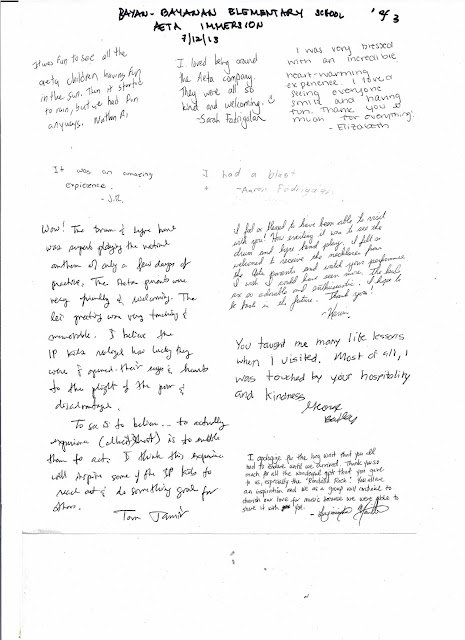 BAYAN-BAYANAN ELEMENTARY SCHOOL
AETA IMMERSION
7/12/13
It was fun to see all the
aeta children having fun
in the sun. Then it started
to rain, but we had fun
anyways. Nathan R.
I loved being around
the Aeta company.
They were all so
kind and welcoming. :)
-Sarah Fadrigalan
I was very blessed
with an incredible
heart-warming
experience. I loved
seeing everyone
smile and having
fun. Thank you so
much for everything!
- Elizabeth
It was an amazing
experience.
- J.R.
I had a blast
-Aaron Fadrigalan
Wow! The drum & lyre band
was superb playing the national
anthem w/ only a few days of
practice. The Aeta parents were
very friendly & welcoming. The
lei greeting was very touching &
memorable. I believe the
IP kids realized how lucky they
were & opened their eyes & hearts
to the plight of the poor &
disadvantaged.
To see is to believe... to actually
experience (albeit short) is to enable
them to act. I think this experience
will inspire some of the IP kids to
reach out & do something good for
others.
Tom
I feel so blessed to have been able to visit
with you! How exciting it was to see the
drum and lyre band play. I felt so
welcomed to receive the necklaces from
the Aeta parents and watch your performance
I wish I could have seen more. The kids
are so adorable and enthusiastic. I hope to
be back in the future. Thank you!
You taught me many life lessons
when I visited. Most of all, I
was touched by your hospitality
and kindness
George
Bailey
I apologize for the long wait that you all
had to endure until we arrived. Thank you so
much for all the wonderful gifts that you gave
to us, especially the "Rondalla Rock". You all were
an inspiration and we as a group will continue to
cherish our love for music because we were able to
share it with you.